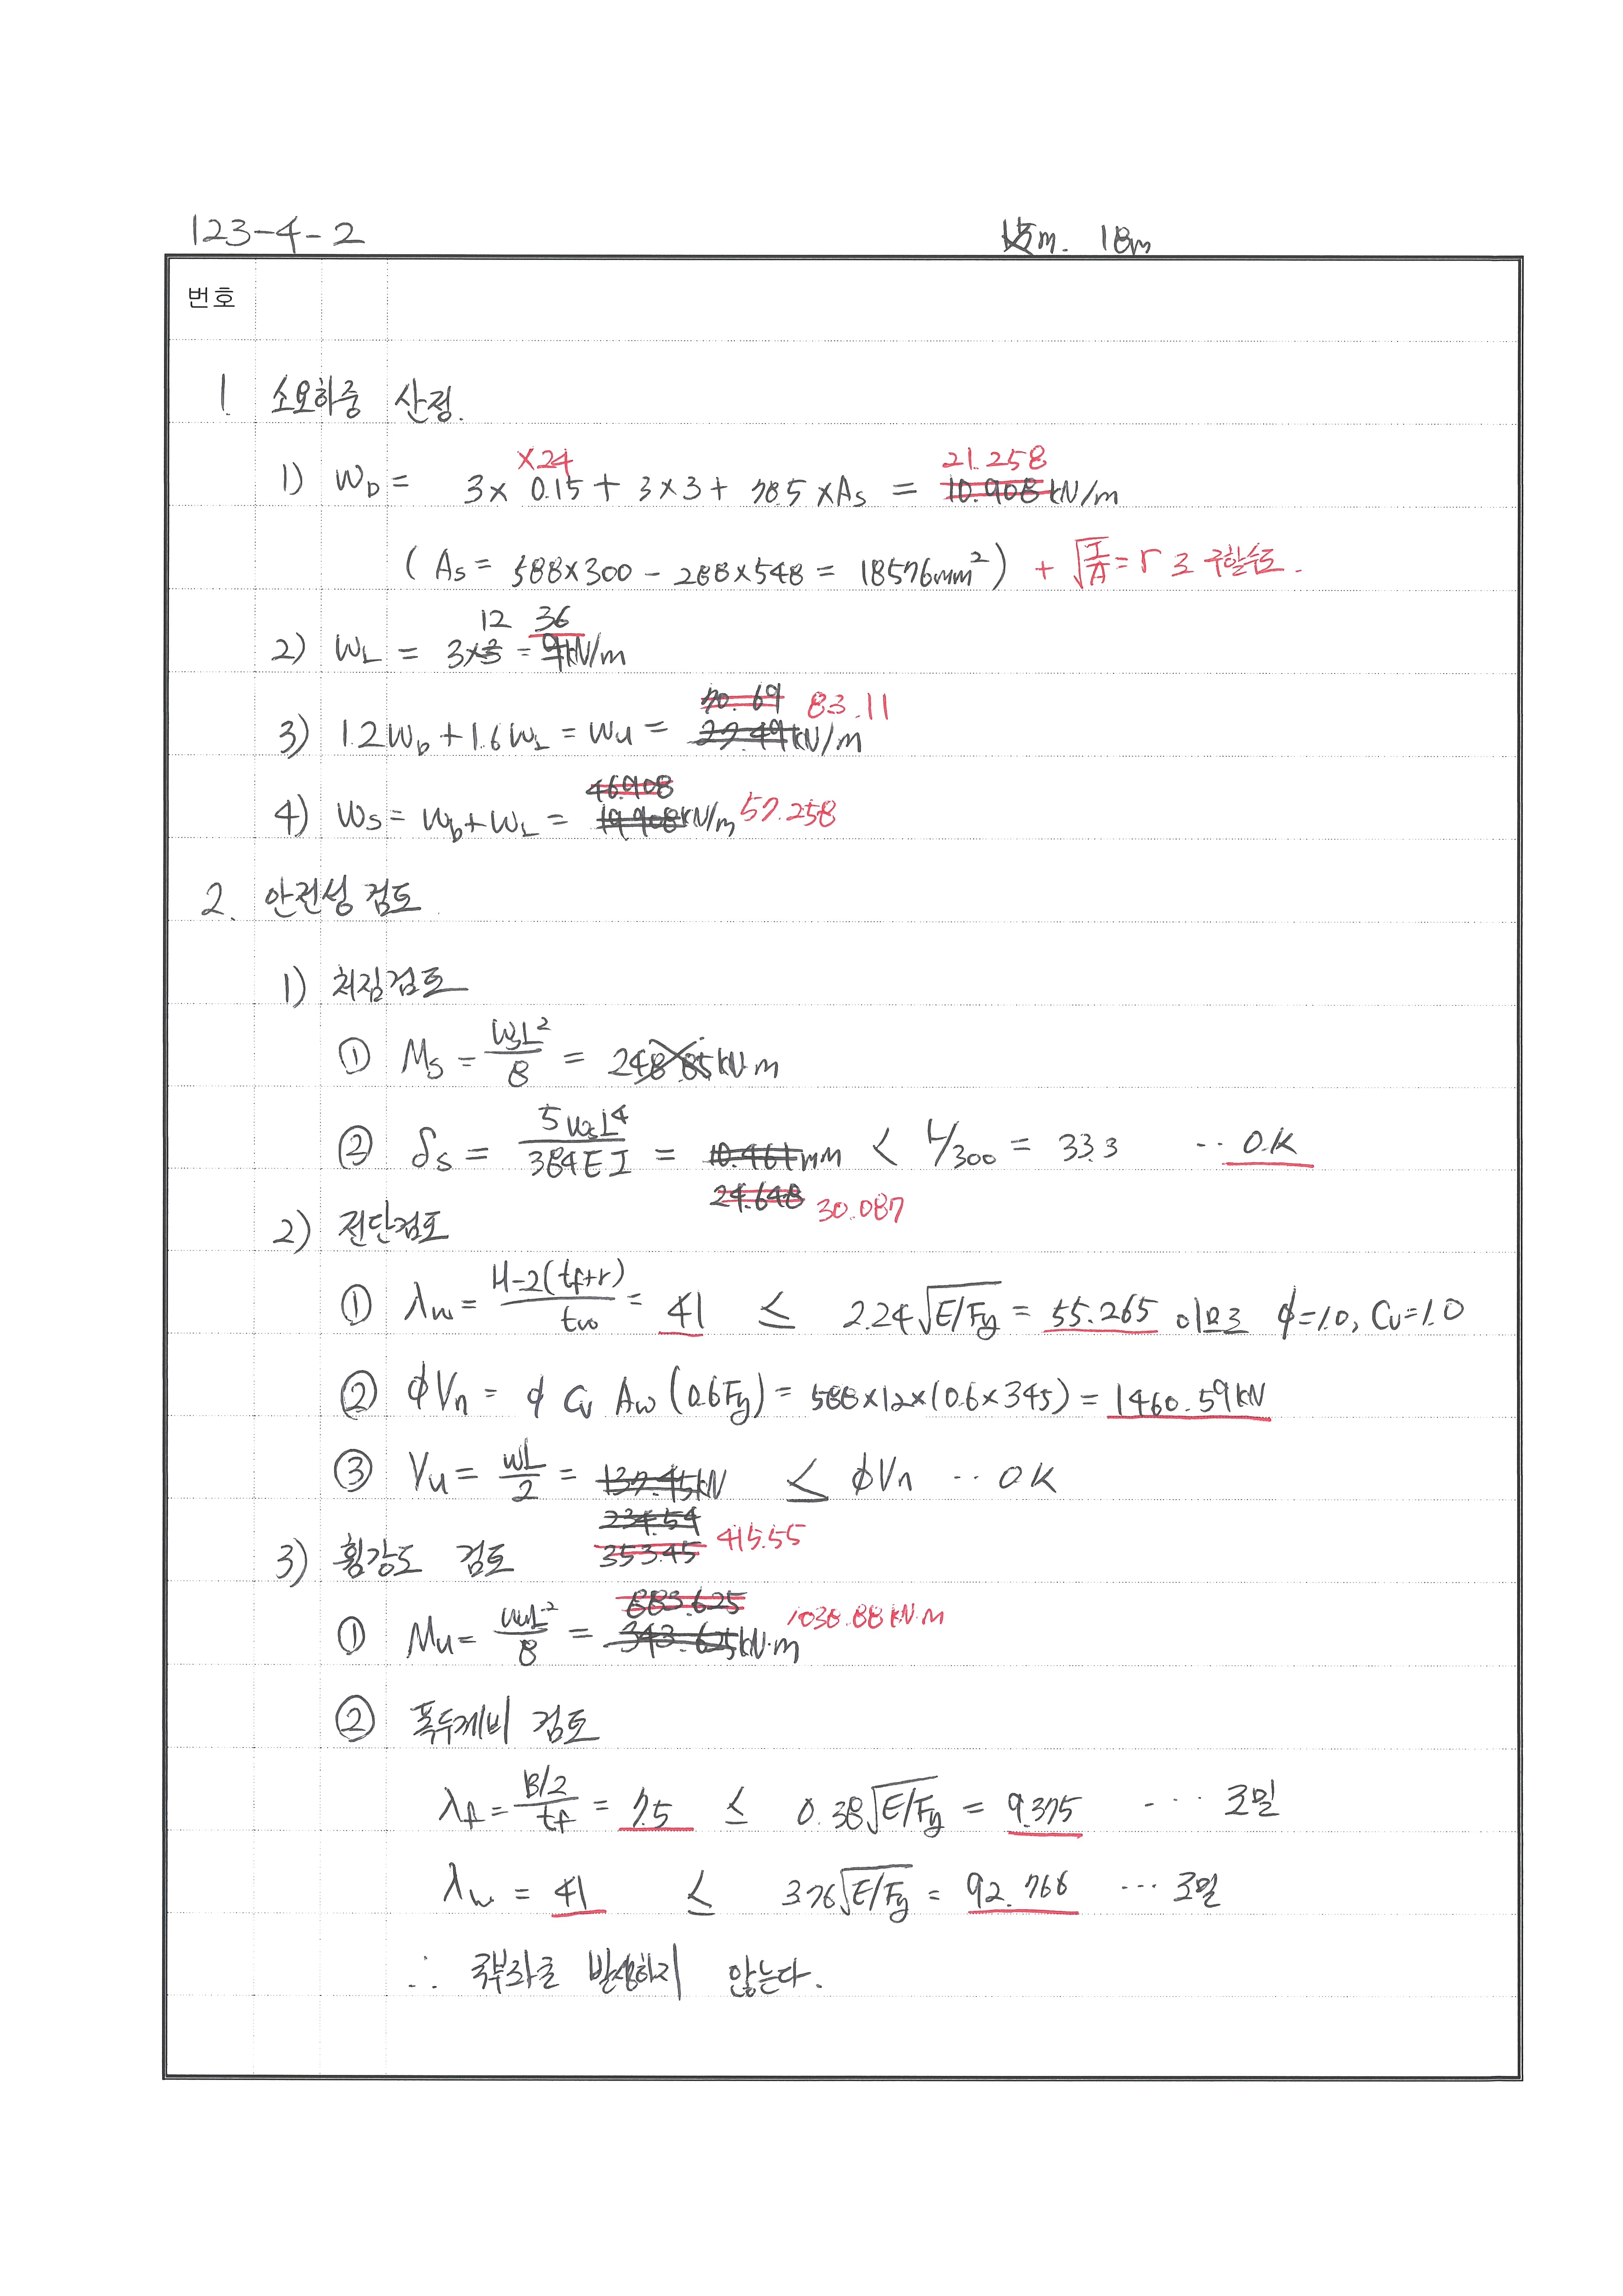 123-4-2
15m. 18m
번호
1. 소요하중 산정.
×24 21.258
1) W_D = 3× 0.15 + 3×3 + 78.5 ×A_s = 10.908 kN/m
( A_s = 588×300 - 288×548 = 18576mm²) + √(I/A) = r 로 구할수도.
12 36
2) W_L = 3×3 = 9kN/m
70.69 83.11
3) 1.2W_D + 1.6W_L = W_u = 27.49kN/m
46.908
4) W_s = W_D + W_L = 19.908kN/m 57.258
2. 안전성 검토.
1) 처짐검토
① M_s = W_sL²/8 = 248.85kN·m
② δ_s = 5W_sL⁴/384EI = 10.461mm < L/300 = 33.3 ·· O.K
24.648 30.087
2) 전단검토
① λ_w = H-2(t_f+r)/t_w = 41 ≤ 2.24√E/F_y = 55.265 이므로 ϕ=1.0, C_v=1.0
② ϕV_n = ϕ C_v A_w (0.6F_y) = 588×12×(0.6×345) = 1460.59kN
③ V_u = wL/2 = 137.45kN ≤ ϕV_n ·· OK
234.54
353.45 415.55
3) 휨강도 검토
883.625 1038.88 kN·m
① M_u = W_uL²/8 = 343.625kN·m
② 폭두께비 검토
λ_f = B/2/t_f = 7.5 ≤ 0.38√E/F_y = 9.375 ··· 조밀
λ_w = 41 ≤ 3.76√E/F_y = 92.766 ··· 조밀
∴ 국부좌굴 발생하지 않는다.